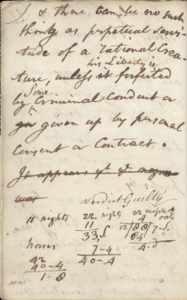 & there can be no such
thing as perpetual Servi-
tude of a rational Crea-
his Liberty is
ture, unless at forfeited
Some
by Criminal conduct or
given up by personal
Consent or Contract.
It appears
was
Verdict Guilty
11 nights 22 nights 22
11
33.
12/88/7.4
84
4.d
hones 7-4
42 40-4
40-4
1-8